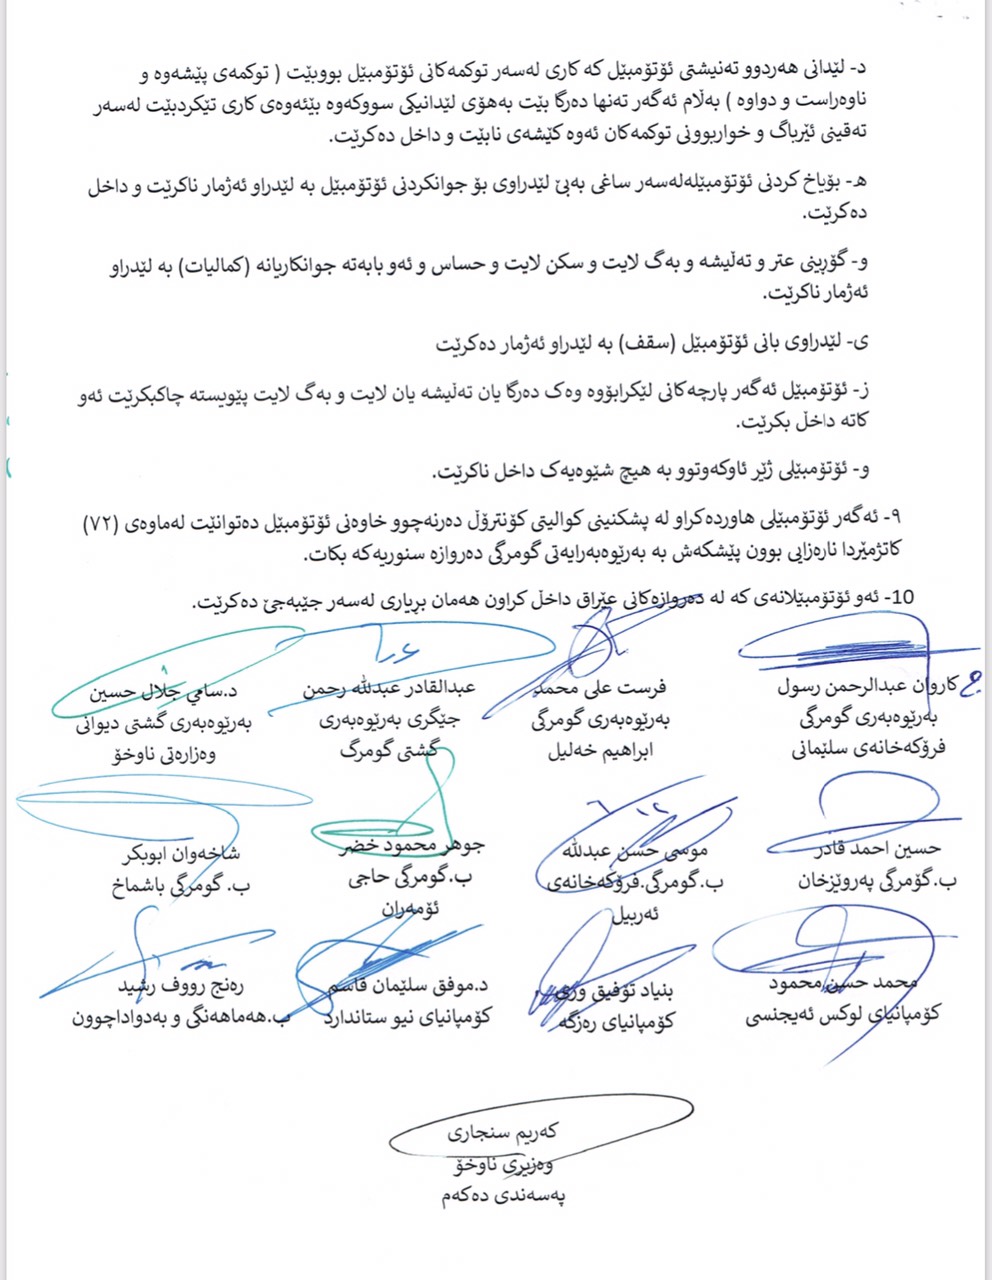 د- لێدانی هەردوو تەنیشتی ئۆتۆمبێل کە کاری لەسەر توکمەکانی ئۆتۆمبێل بووبێت ( توکمەی پێشەوە و
ناوەراست و دواوە ) بەڵام ئەگەر تەنها دەرگا بێت بەهۆی لێدانیکی سووکەوە بێئەوەی کاری تێکردبێت لەسەر
تەقینی ئێرباگ و خواربوونی توکمەکان ئەوە کێشەی نابێت و داخل دەکرێت.
ھ- بۆیاخ کردنی ئۆتۆمبێلەلەسەر ساغی بەبێ لێدراوی بۆ جوانکردنی ئۆتۆمبێل بە لێدراو ئەژمار ناکرێت و داخل
دەکرێت.
و- گۆڕینی عتر و تەڵیشە و بەگ لایت و سکن لایت و حساس و ئەو بابەتە جوانکاریانە (کمالیات) بە لێدراو
ئەژمار ناکرێت.
ی- لێدراوی بانی ئۆتۆمبێل (سقف) بە لێدراو ئەژمار دەکرێت
ز- ئۆتۆمبێل ئەگەر پارچەکانی لێکرابۆوە وەک دەرگا یان تەڵیشە یان لایت و بەگ لایت پێویستە چاکبکرێت ئەو
کاتە داخڵ بکرێت.
و- ئۆتۆمبێلی ژێر ئاوکەوتوو بە هیچ شێوەیەک داخل ناکرێت.
٩- ئەگەر ئۆتۆمبێلی هاوردەکراو لە پشکنینی کوالیتی کۆنترۆڵ دەرنەچوو خاوەنی ئۆتۆمبێل دەتوانێت لەماوەی (٧٢)
کاتژمێردا نارەزایی بوون پێشکەش بە بەرێوەبەرایەتی گومرگی دەروازە سنوریەکە بکات.
10- ئەو ئۆتۆمبێلانەی کە لە دەروازەکانی عێراق داخڵ کراون هەمان بڕیاری لەسەر جێبەجێ دەکرێت.
کاروان عبدالرحمن رسول فرست علی محمد عبدالقادر عبدلله رحمن د.سامي جلال حسین
بەرێوەبەری گومرگی بەرێوەبەری گومرگی جێگری بەرێوەبەری بەرێوەبەری گشتی دیوانی
فرۆکەخانەی سلێمانی ابراهیم خەلیل گشتی گومرگ وەزارەتی ناوخۆ
حسین احمد قادر موسی حسن عبدلله جوهر محمود خضر شاخەوان ابوبکر
ب.گۆمرگی پەروێزخان ب.گومرگی.فرۆکەخانەی ب.گومرگی حاجی ب. گومرگی باشماخ
ئەربیل ئۆمەران
محمد حسن محمود بنیاد تۆفیق د.موفق سلێمان قاسم رەنج رووف رشید
کۆمپانیای لوکس ئەیجنسی کۆمپانیای رەزگە کۆمپانیای نیو ستاندارد ب.هەماهەنگی و بەدواداچوون
کەریم سنجاری
وەزیری ناوخۆ
پەسەندی دەکەم